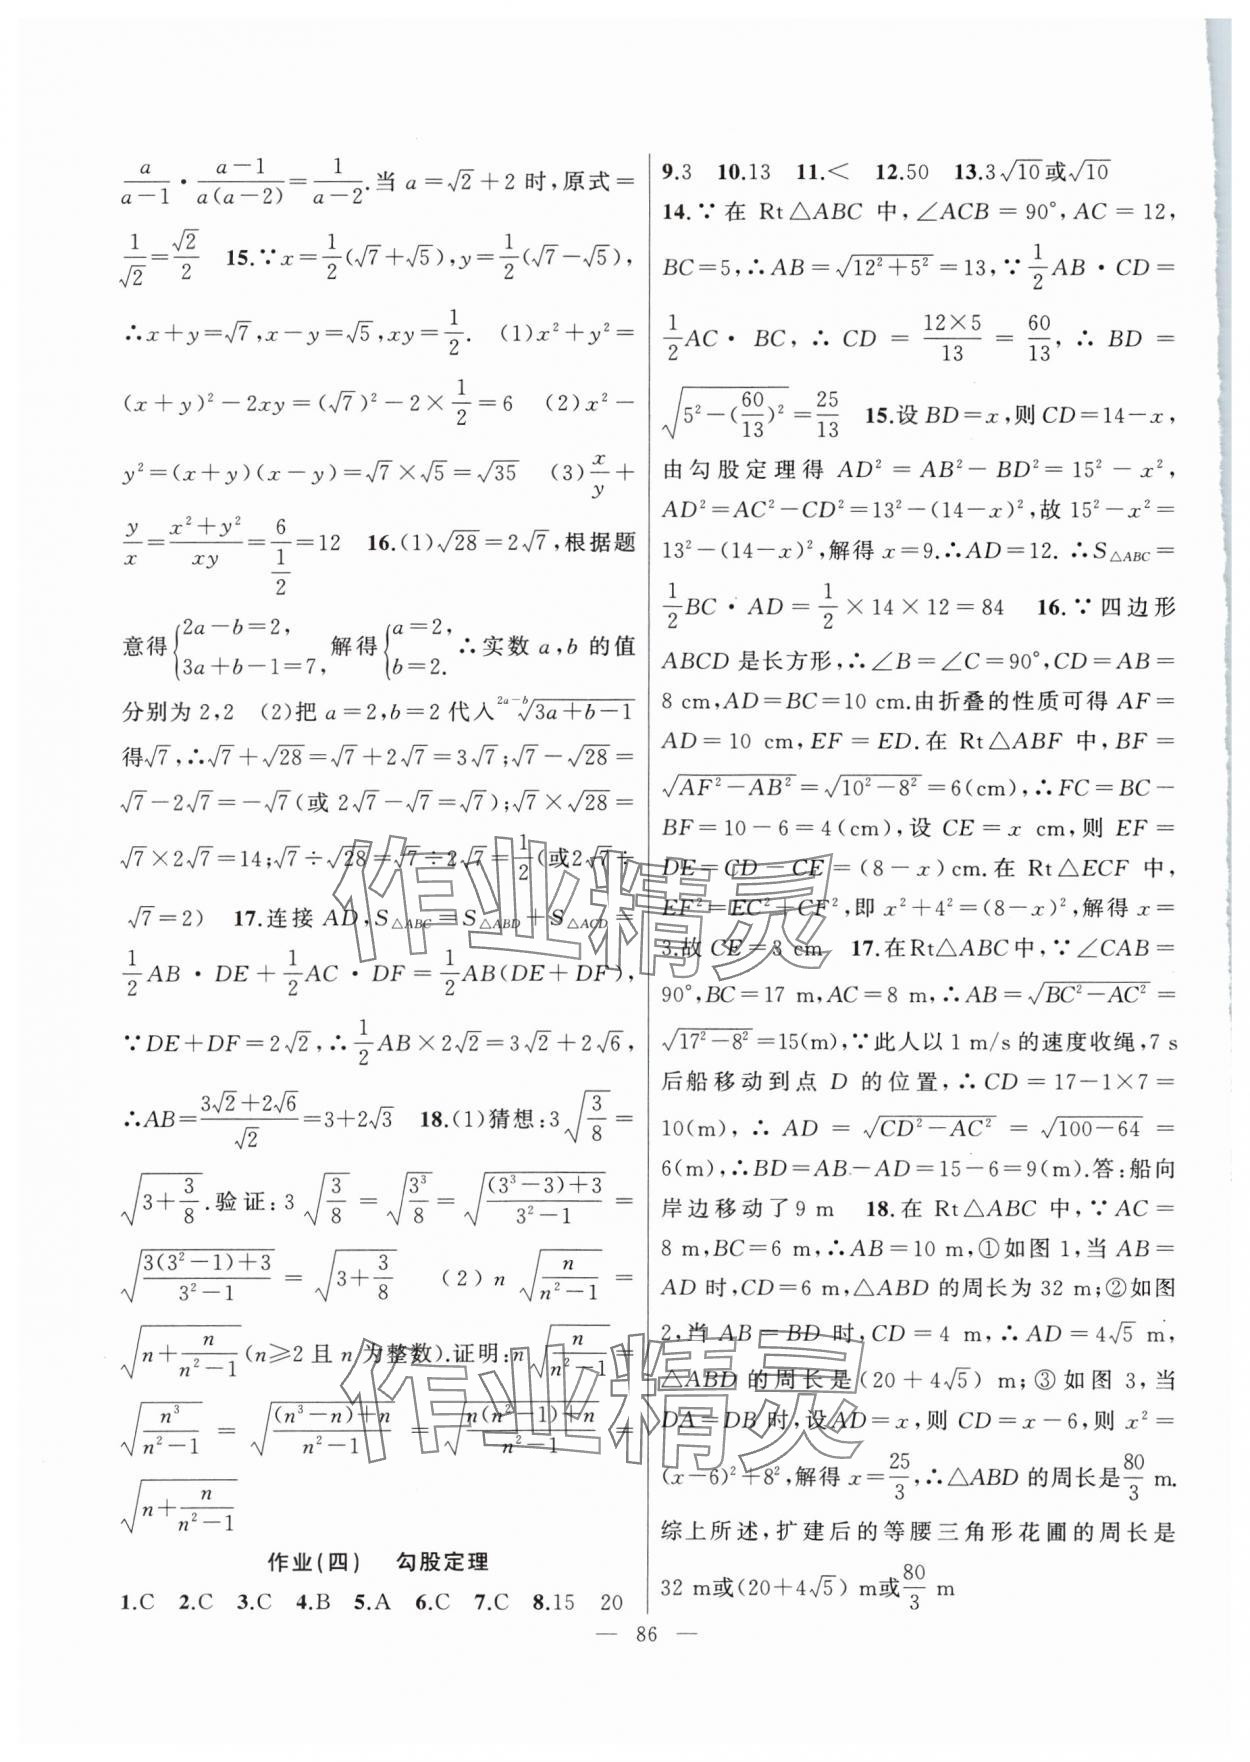 a/(a－1)·(a－1)/(a(a－2))＝1/(a－2).当 a＝√2＋2 时,原式＝
1/√2＝√2/2　15.∵x＝1/2(√7＋√5),y＝1/2(√7－√5),
∴x＋y＝√7,x－y＝√5,xy＝1/2.　(1)x²＋y²＝
(x＋y)²－2xy＝(√7)²－2×1/2＝6　(2)x²－
y²＝(x＋y)(x－y)＝√7×√5＝√35　(3)x/y＋
y/x＝(x²＋y²)/xy＝6/(1/2)＝12　16.(1)√28＝2√7,根据题
意得{2a－b＝2, 3a＋b－1＝7, 解得{a＝2, b＝2. ∴实数 a,b 的值
分别为 2,2　(2)把 a＝2,b＝2 代入 ^(2a－b)√(3a＋b－1)
得√7,∴√7＋√28＝√7＋2√7＝3√7;√7－√28＝
√7－2√7＝－√7(或 2√7－√7＝√7);√7×√28＝
√7×2√7＝14;√7÷√28＝√7÷2√7＝1/2(或2√7÷
√7＝2)　17.连接 AD,S△ABC＝S△ABD＋S△ACD＝
1/2AB·DE＋1/2AC·DF＝1/2AB(DE＋DF),
∵DE＋DF＝2√2,∴1/2AB×2√2＝3√2＋2√6,
∴AB＝(3√2＋2√6)/√2＝3＋2√3　18.(1)猜想:3√(3/8)＝
√(3＋3/8).验证:3√(3/8)＝√(3³/8)＝√(((3³－3)＋3)/(3²－1))＝
√((3(3²－1)＋3)/(3²－1))＝√(3＋3/8)　(2)n√(n/(n²－1))＝
√(n＋n/(n²－1))(n≥2 且 n 为整数).证明:n√(n/(n²－1))＝
√(n³/(n²－1))＝√(((n³－n)＋n)/(n²－1))＝√((n(n²－1)＋n)/(n²－1))＝
√(n＋n/(n²－1))
作业(四)　勾股定理
1.C　2.C　3.C　4.B　5.A　6.C　7.C　8.15　20
9.3　10.13　11.＜　12.50　13.3√10或√10
14.∵在 Rt△ABC 中,∠ACB＝90°,AC＝12,
BC＝5,∴AB＝√(12²＋5²)＝13,∵1/2AB·CD＝
1/2AC·BC,∴CD＝(12×5)/13＝60/13,∴BD＝
√(5²－(60/13)²)＝25/13　15.设 BD＝x,则 CD＝14－x,
由勾股定理得 AD²＝AB²－BD²＝15²－x²,
AD²＝AC²－CD²＝13²－(14－x)²,故 15²－x²＝
13²－(14－x)²,解得 x＝9.∴AD＝12.∴S△ABC＝
1/2BC·AD＝1/2×14×12＝84　16.∵四边形
ABCD 是长方形,∴∠B＝∠C＝90°,CD＝AB＝
8 cm,AD＝BC＝10 cm.由折叠的性质可得 AF＝
AD＝10 cm,EF＝ED.在 Rt△ABF 中,BF＝
√(AF²－AB²)＝√(10²－8²)＝6(cm),∴FC＝BC－
BF＝10－6＝4(cm),设 CE＝x cm,则 EF＝
DE＝CD－CE＝(8－x)cm.在 Rt△ECF 中,
EF²＝EC²＋CF²,即 x²＋4²＝(8－x)²,解得 x＝
3.故 CE＝3 cm　17.在Rt△ABC中,∵∠CAB＝
90°,BC＝17 m,AC＝8 m,∴AB＝√(BC²－AC²)＝
√(17²－8²)＝15(m),∵此人以 1 m/s 的速度收绳,7 s
后船移动到点 D 的位置,∴CD＝17－1×7＝
10(m),∴AD＝√(CD²－AC²)＝√(100－64)＝
6(m),∴BD＝AB－AD＝15－6＝9(m).答:船向
岸边移动了 9 m　18.在 Rt△ABC 中,∵AC＝
8 m,BC＝6 m,∴AB＝10 m,①如图 1,当 AB＝
AD 时,CD＝6 m,△ABD 的周长为 32 m;②如图
2,当 AB＝BD 时,CD＝4 m,∴AD＝4√5 m,
△ABD 的周长是(20＋4√5) m;③如图 3,当
DA＝DB 时,设AD＝x,则 CD＝x－6,则 x²＝
(x－6)²＋8²,解得 x＝25/3,∴△ABD 的周长是80/3 m.
综上所述,扩建后的等腰三角形花圃的周长是
32 m或(20＋4√5) m或80/3 m
— 86 —
作业精灵
作业精灵